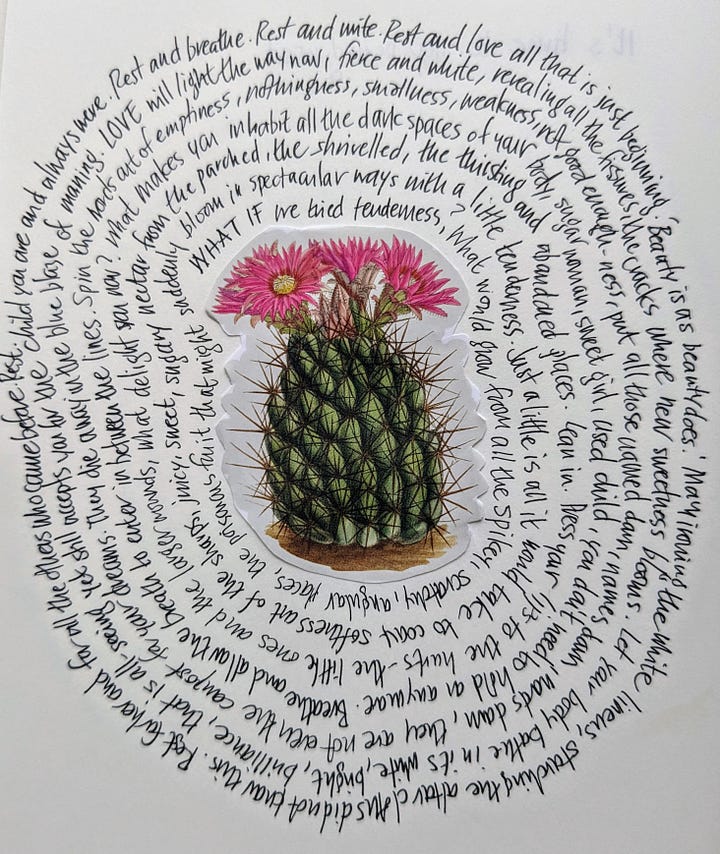 WHAT IF we tried tenderness, what would grow from all the spikey, scratchy, angular places, the poisonous fruit that might suddenly
bloom in spectacular ways with a little tenderness. Just a little is all it would take to coax softness out of the sharps, juicy, sweet, sugary nectar
from the parched, the shrivelled, the thirsting and abandoned places. Lean in. Press your lips to the hurts - the little ones and the larger wounds, what delight you now?
what makes you inhabit all the dark spaces of your body, sugar woman, sweet girl, used child, you don't need to hold on anymore. Breathe and allow the breath to enter in between the lines.
Spin the words out of emptiness, nothingness, smallness, weakness, not good enough-ness, put all those names down, names down words down, they are not even the compost for your dreams. They die away in the blue blaze of naming.
LOVE will light the way now, fierce and white, revealing all the fissures, the cracks where new sweetness blooms. Let your body bathe in its white, bright, brilliance, that is all seeing yet still accepts you for the child you are and always were.
Rest and breathe. Rest and write. Rest and love all that is just beginning. 'Beauty is as beauty does.' Mary ironing the white linens, starching the altar cloths did not know this. Rest for her and for all the others who came before. Rest.